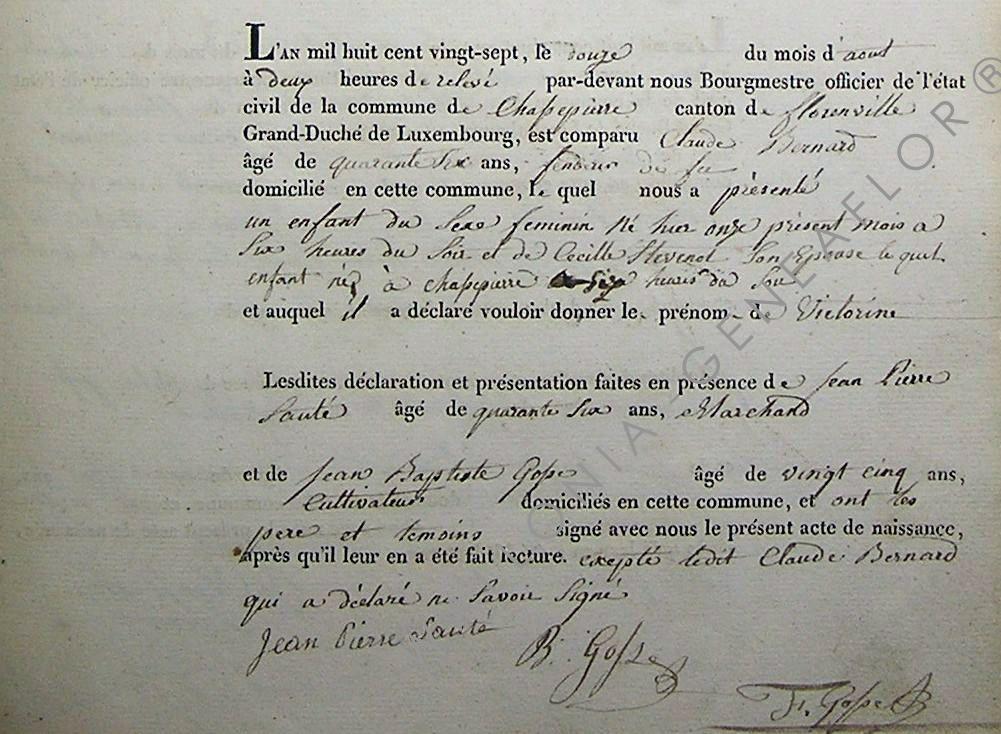 L'AN mil huit cent vingt-sept, le douze du mois d'aout
à deux heures de relevé par-devant nous Bourgmestre officier de l'état
civil de la commune de Chassepierre canton de florenville
Grand-Duché de Luxembourg, est comparu Claude Bernard
âgé de quarante six ans, fendeur de fer
domicilié en cette commune, le quel nous a présenté
un enfant du Sexe feminin né hier onze présent mois a
Six heures du Soir et de Cecille Stevenot Son Epouse le quel
enfant né à chassepierre heures du Soir
et auquel il a déclaré vouloir donner le prénom de Victorine
Lesdites déclaration et présentation faites en présence de Jean Pierre
Santé âgé de quarante Six ans, Marchand
et de Jean Baptiste Gosse âgé de vingt cinq ans,
Cultivateur domiciliés en cette commune, et ont les
pere et temoins signé avec nous le présent acte de naissance,
après qu'il leur en a été fait lecture. excepté ledit Claude Bernard
qui a déclaré ne Savoir Signé
Jean Pierre Santé
B. Gosse
F. Gosse
GENEAFLOR ®